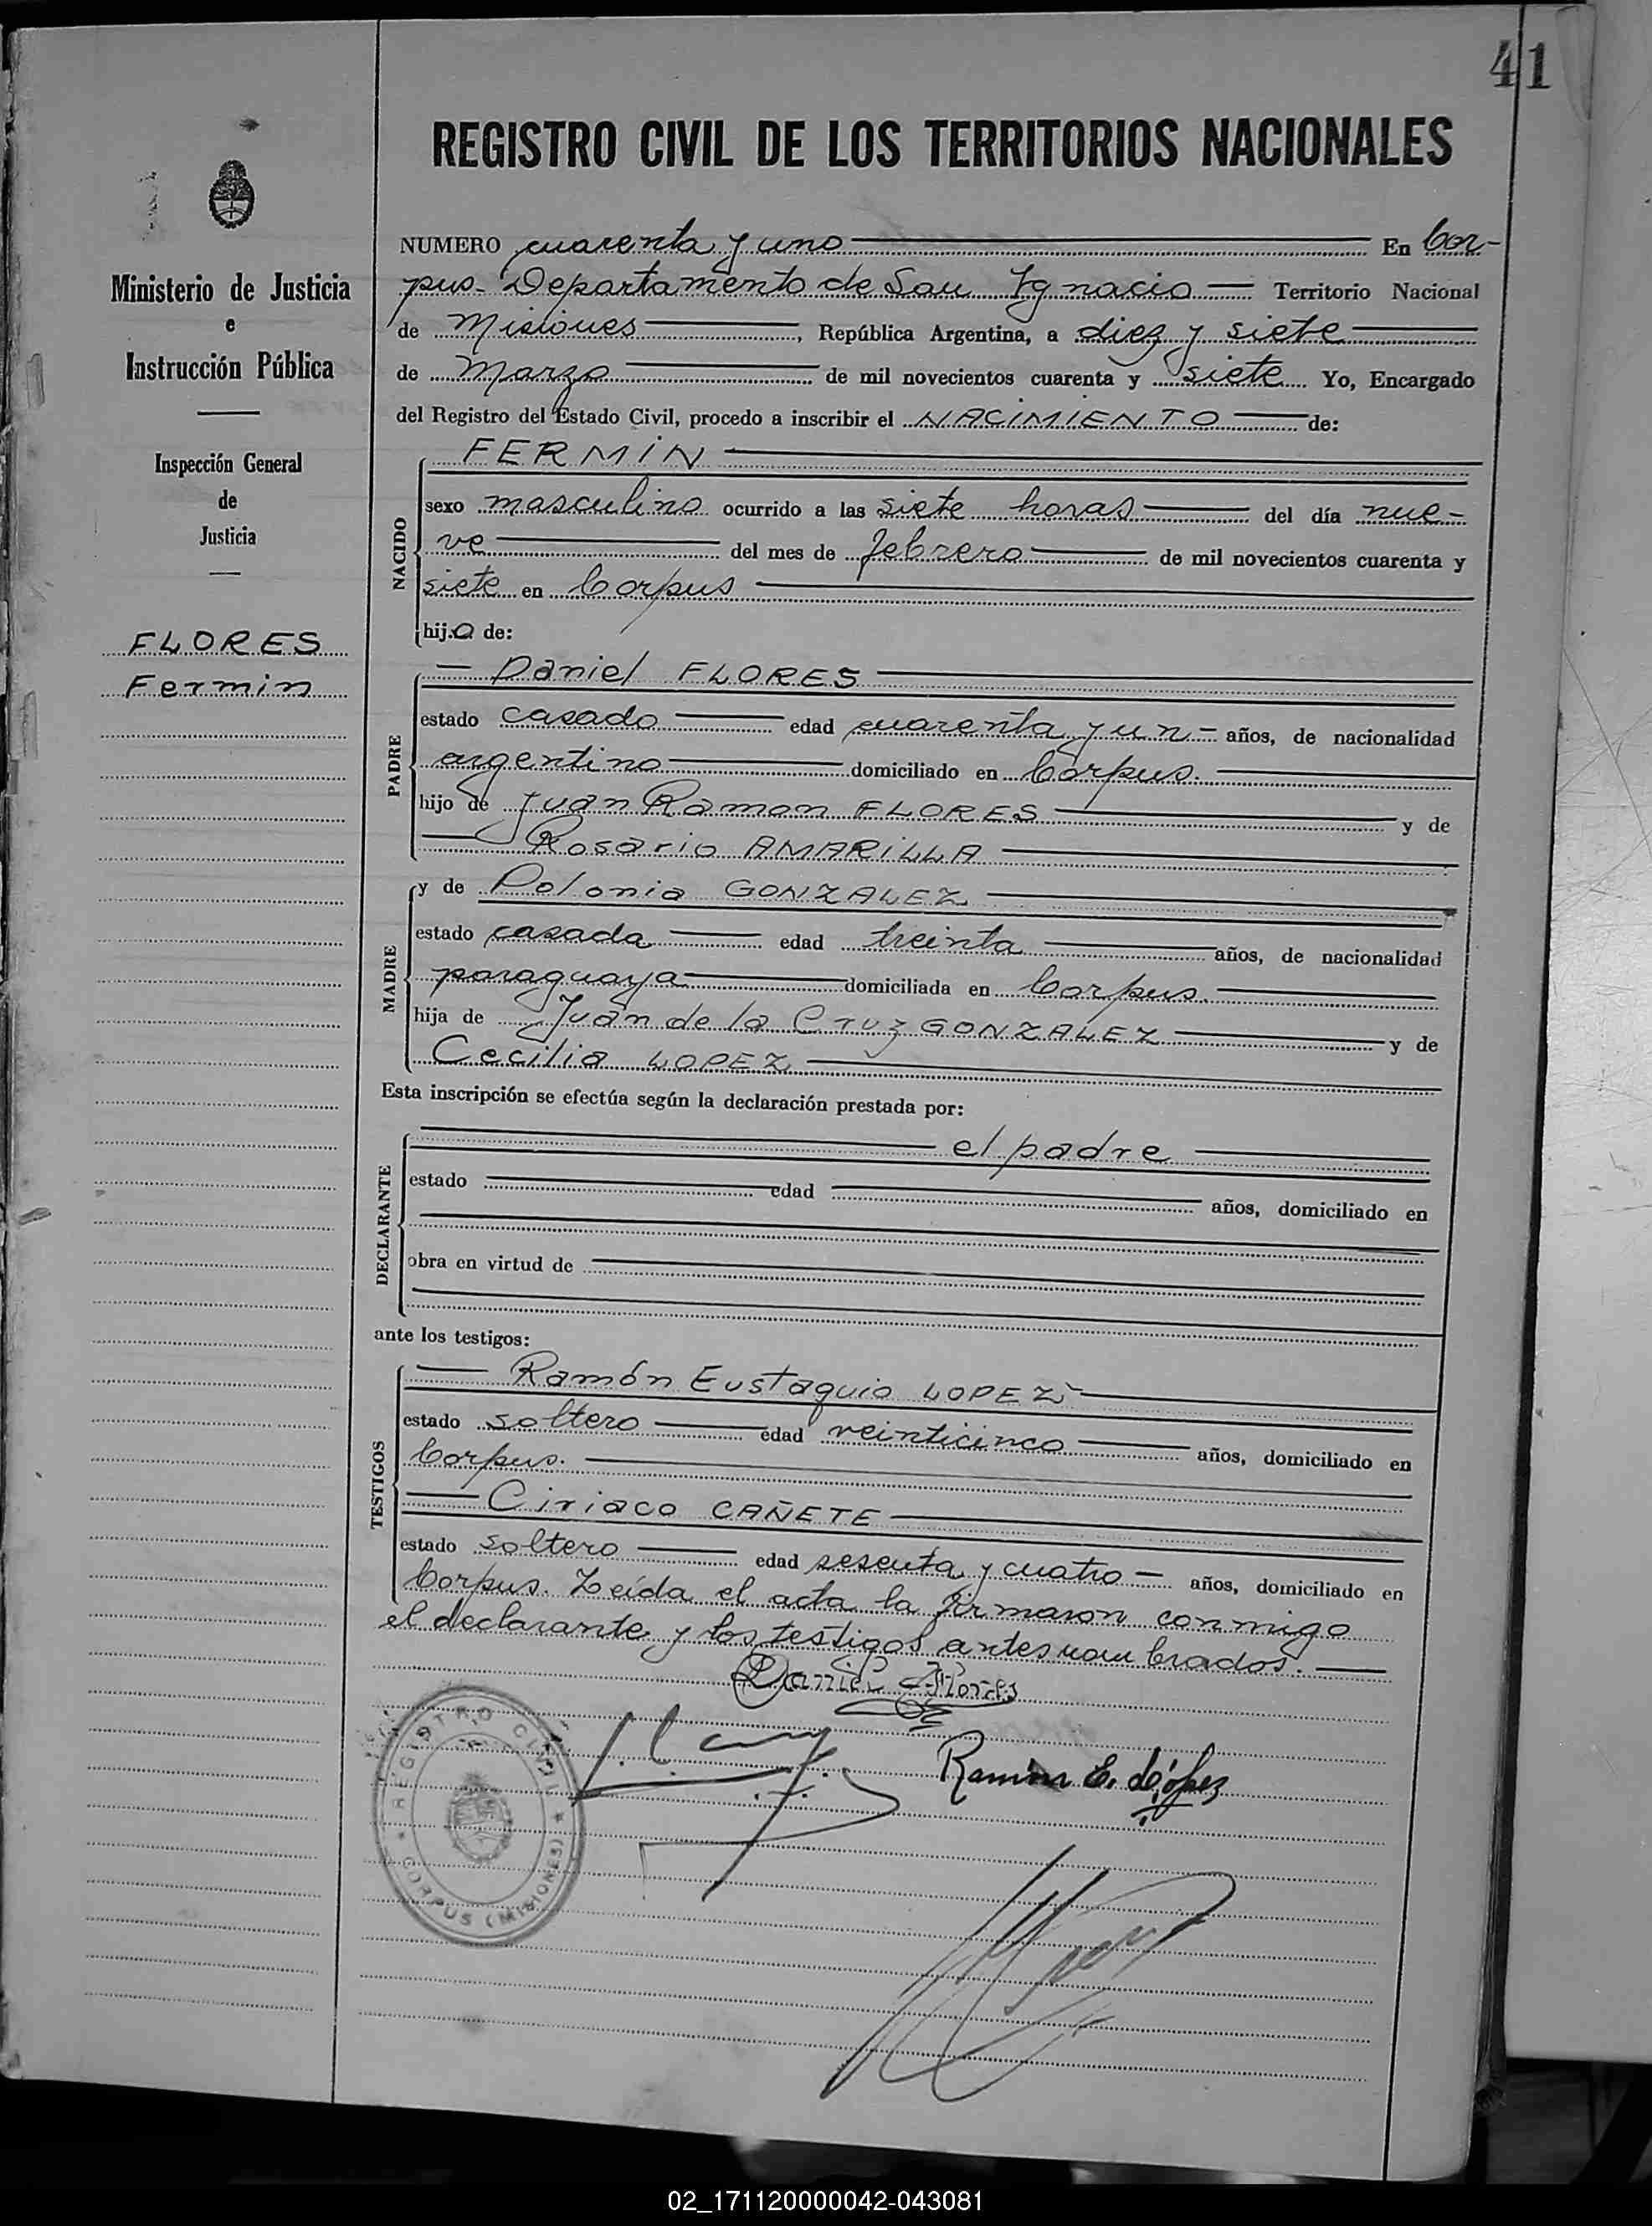 41
REGISTRO CIVIL DE LOS TERRITORIOS NACIONALES
Ministerio de Justicia
e
Instrucción Pública
Inspección General
de
Justicia
FLORES
Fermin
NUMERO cuarenta y uno En Cor-
pus- Departamento de San Ygnacio Territorio Nacional
de Misiones, República Argentina, a diez y siete
de Marzo de mil novecientos cuarenta y siete Yo, Encargado
del Registro del Estado Civil, procedo a inscribir el NACIMIENTO de:
NACIDO
FERMIN
sexo masculino ocurrido a las siete horas del día nue-
ve del mes de febrero de mil novecientos cuarenta y
siete en Corpus
hijo de:
PADRE
Daniel FLORES
estado casado edad cuarenta y un- años, de nacionalidad
argentino domiciliado en Corpus.
hijo de Juan Ramon FLORES y de
Rosario AMARILLA
MADRE
y de Polonia GONZALEZ
estado casada edad treinta años, de nacionalidad
paraguaya domiciliada en Corpus.
hija de Juan de la Cruz GONZALEZ y de
Cecilia LOPEZ
Esta inscripción se efectúa según la declaración prestada por:
DECLARANTE
el padre
estado edad años, domiciliado en
obra en virtud de
ante los testigos:
TESTIGOS
Ramón Eustaquio LOPEZ
estado soltero edad veinticinco años, domiciliado en
Corpus.
Ciriaco CAÑETE
estado soltero edad sesenta y cuatro años, domiciliado en
Corpus. Leída el acta la firmaron conmigo
el declarante y los testigos antes nombrados.
Daniel Flores
Ramon E. López
REGISTRO CIVIL
CORPUS (MISIONES)
02_171120000042-043081